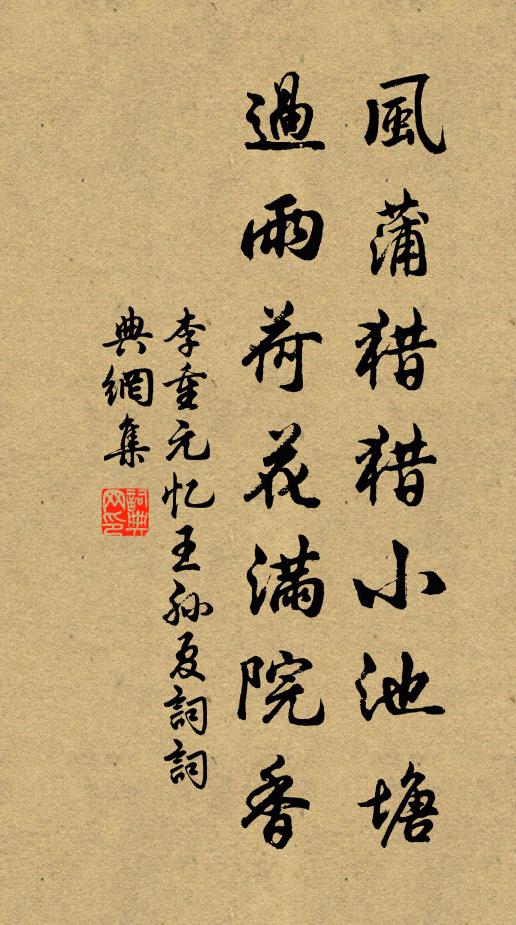 風蒲猎猎小池塘
過雨荷花满院香
李重元忆王孙夏詞詞
典網集
詞典
网印